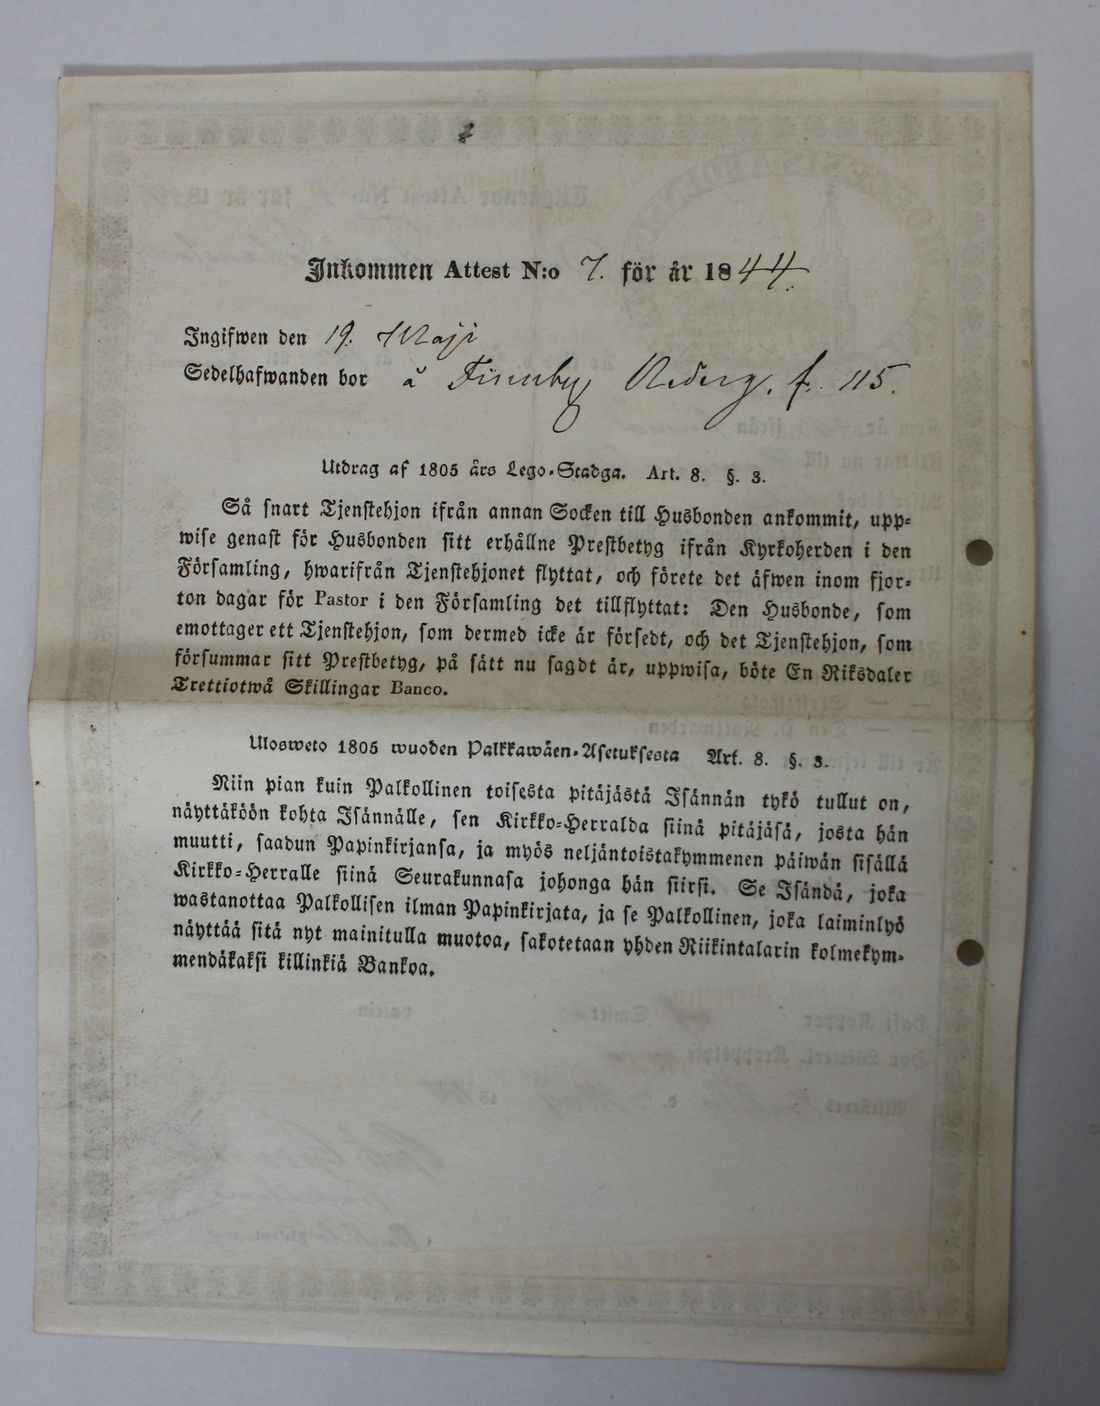 Inkommen Attest N:o 7. för år 1844.
Ingifwen den 19. Maji
Sedelhafwanden bor å Finnby f. 115.
Utdrag af 1805 års Lego-Stadga. Art. 8. §. 3.
Så snart Tjenstehjon ifrån annan Socken till Husbonden ankommit, upp-
wise genast för Husbonden sitt erhållne Prestbetyg ifrån Kyrkoherden i den
Församling, hwarifrån Tjenstehjonet flyttat, och förete det äfwen inom fjor-
ton dagar för Pastor i den Församling det tillflyttat: Den Husbonde, som
emottager ett Tjenstehjon, som dermed icke är försedt, och det Tjenstehjon, som
försummar sitt Prestbetyg, på sätt nu sagdt är, uppwisa, böte En Riksdaler
Trettiotwå Skillingar Banco.
Ulosweto 1805 wuoden Palkkawäen-Asetuksesta Art. 8. §. 3.
Niin pian kuin Palkollinen toisesta pitäjästä Isännän tykö tullut on,
näyttäköön kohta Isännälle, sen Kirkko-Herralda siinä pitäjäsä, josta hän
muutti, saadun Papinkirjansa, ja myös neljäntoistakymmenen päiwän sisällä
Kirkko-Herralle siinä Seurakunnasa johonga hän siirsi. Se Isändä, joka
wastanottaa Palkollisen ilman Papinkirjata, ja se Palkollinen, joka laiminlyö
näyttää sitä nyt mainitulla muotoa, sakotetaan yhden Riikintalarin kolmekym-
mendäkaksi killinkiä Bankoa.